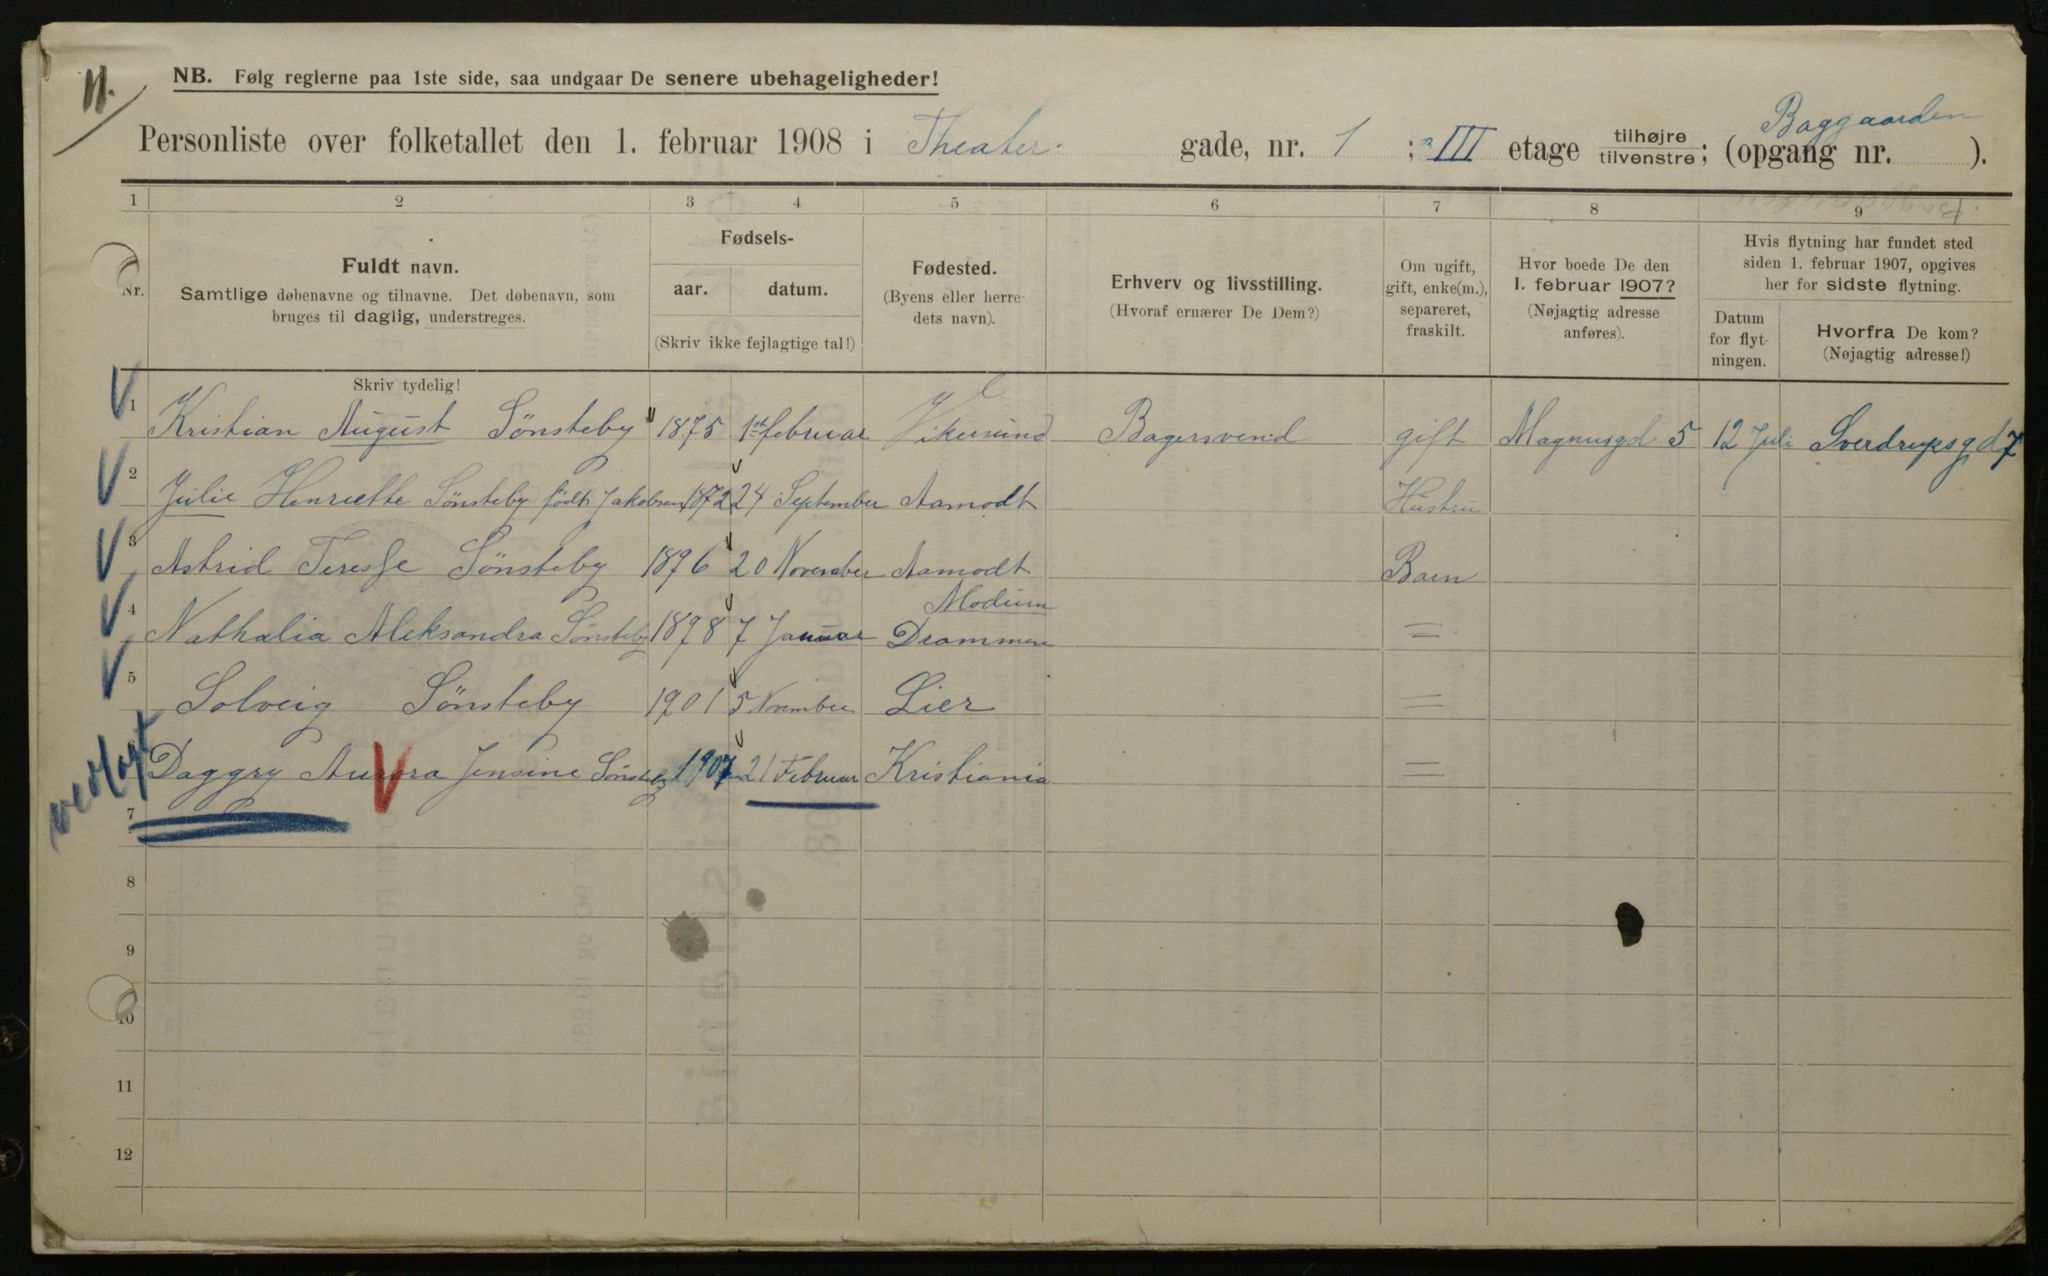 11.
NB. Følg reglerne paa 1ste side, saa undgaar De senere ubehageligheder!
Baggaarden
Personliste over folketallet den 1. februar 1908 i Theater gade, nr. 1 ; III etage tilhøjre tilvenstre; (opgang nr. ).
1 2 3 4 5 6 7 8 9
Nr.
Fuldt navn.
Samtlige døbenavne og tilnavne. Det døbenavn, som
bruges til daglig, understreges.
Skriv tydelig!
Fødsels-
aar. datum.
(Skriv ikke fejlagtige tal!)
Fødested.
(Byens eller herre-
dets navn).
Erhverv og livsstilling.
(Hvoraf ernærer De Dem?)
Om ugift,
gift, enke(m.),
separeret,
fraskilt.
Hvor boede De den
1. februar 1907?
(Nøjagtig adresse
anføres).
Hvis flytning har fundet sted
siden 1. februar 1907, opgives
her for sidste flytning.
Datum
for flyt-
ningen.
Hvorfra De kom?
(Nøjagtig adresse!)
1 Kristian August Sønsteby 1875 1st februar Vikesund Bagersvend gift Magnusgd 5 12 Juli Sverdrupsgd 7
2 Julie Henriette Sønsteby født Jakobsen 1872 24 September Aamodt Hustru
3 Astrid Teresse Sønsteby 1896 20 November Aamodt Barn
Modum
4 Nathalia Aleksandra Sønsteby 1898 7 Januar Drammen =
5 Solveig Sønsteby 1901 5 November Lier =
6 Daggry Aurora Jensine Sønsteby 1907 21 Februar Kristiania =
7
8
9
10
11
12